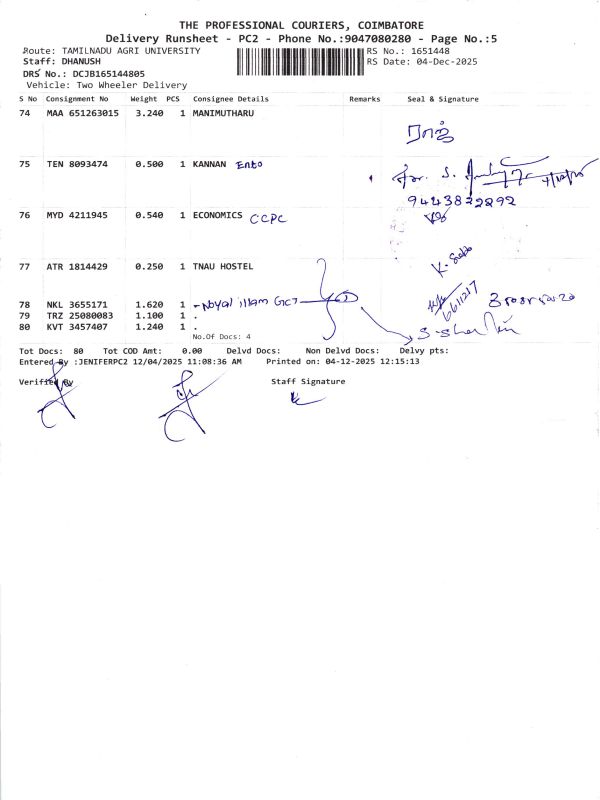 THE PROFESSIONAL COURIERS, COIMBATORE
Delivery Runsheet - PC2 - Phone No.:9047080280 - Page No.:5
Route: TAMILNADU AGRI UNIVERSITY
RS No.: 1651448
Staff: DHANUSH
RS Date: 04-Dec-2025
DRS No.: DCJB165144805
Vehicle: Two Wheeler Delivery
S No Consignment No Weight PCS Consignee Details Remarks Seal & Signature
74 MAA 651263015 3.240 1 MANIMUTHARU
ராஜ்
75 TEN 8093474 0.500 1 KANNAN Ento
for. S.
9443822892
76 MYD 4211945 0.540 1 ECONOMICS CCPC
77 ATR 1814429 0.250 1 TNAU HOSTEL
78 NKL 3655171 1.620 1 . Noyal illam
79 TRZ 25080083 1.100 1 .
80 KVT 3457407 1.240 1 .
No.Of Docs: 4
Tot Docs: 80 Tot COD Amt: 0.00 Delvd Docs: Non Delvd Docs: Delvy pts:
Entered By :JENIFERPC2 12/04/2025 11:08:36 AM Printed on: 04-12-2025 12:15:13
Verified By Staff Signature